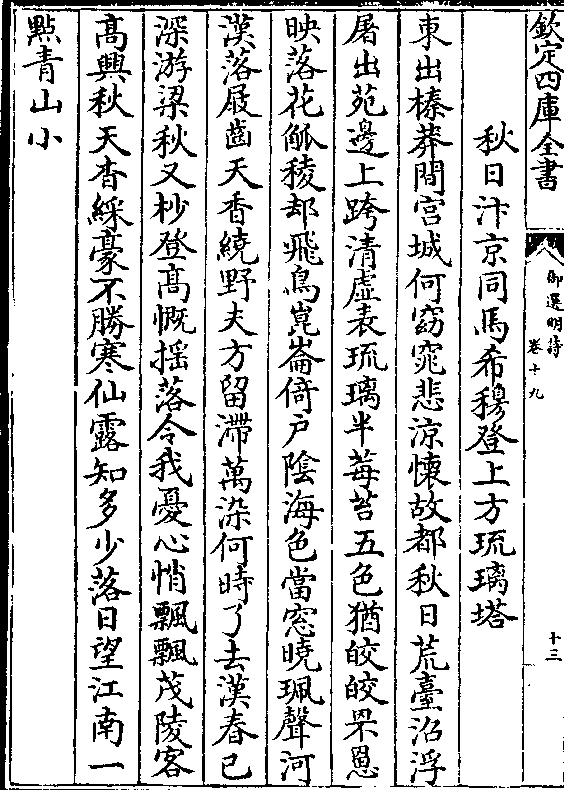 欽定四庫全書
御選明詩
卷十九
十三
秋日汴京同馬希穆登上方琉璃塔
東出榛莽間宫城何窈窕悲涼懐故都秋日荒臺沼浮
屠出苑邊上跨清虚表琉璃半莓苔五色猶皎皎罘罳
映落花觚稜却飛鳥崑崙倚戸隂海色當窓曉珮聲河
漢落屐齒天香繞野夫方留滯萬染何時了去漢春已
深游梁秋又杪登髙慨揺落令我憂心悄飄飄茂陵客
髙興秋天杳綵豪不勝寒仙露知多少落日望江南一
點青山小